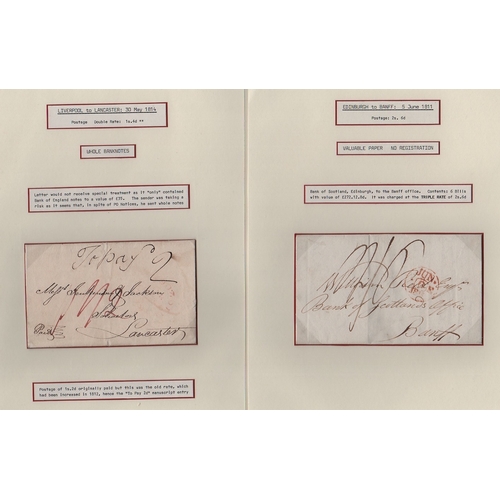 LIVERPOOL to LANCASTER: 30 May 1814
Postage Double Rate: 1s.4d **
WHOLE BANKNOTES
Letter would not receive special treatment as it "only" contained
Bank of England notes to a value of £35. The sender was taking a
risk as it seems that, in spite of PO notices, he sent whole notes
To pay 2
Messrs
Jackson
Lancaster
Paid
Postage of 1s.2d originally paid but this was the old rate, which
had been increased in 1812, hence the "To Pay 2d" manuscript entry
EDINBURGH to BANFF: 5 June 1811
Postage: 2s. 6d
VALUABLE PAPER NO REGISTRATION
Bank of Scotland, Edinburgh, to the Banff office. Contents: 6 Bills
with value of £272.13.8d. It was charged at the TRIPLE RATE of 2s.6d
JUN
Bank of Scotlands Office
Banff